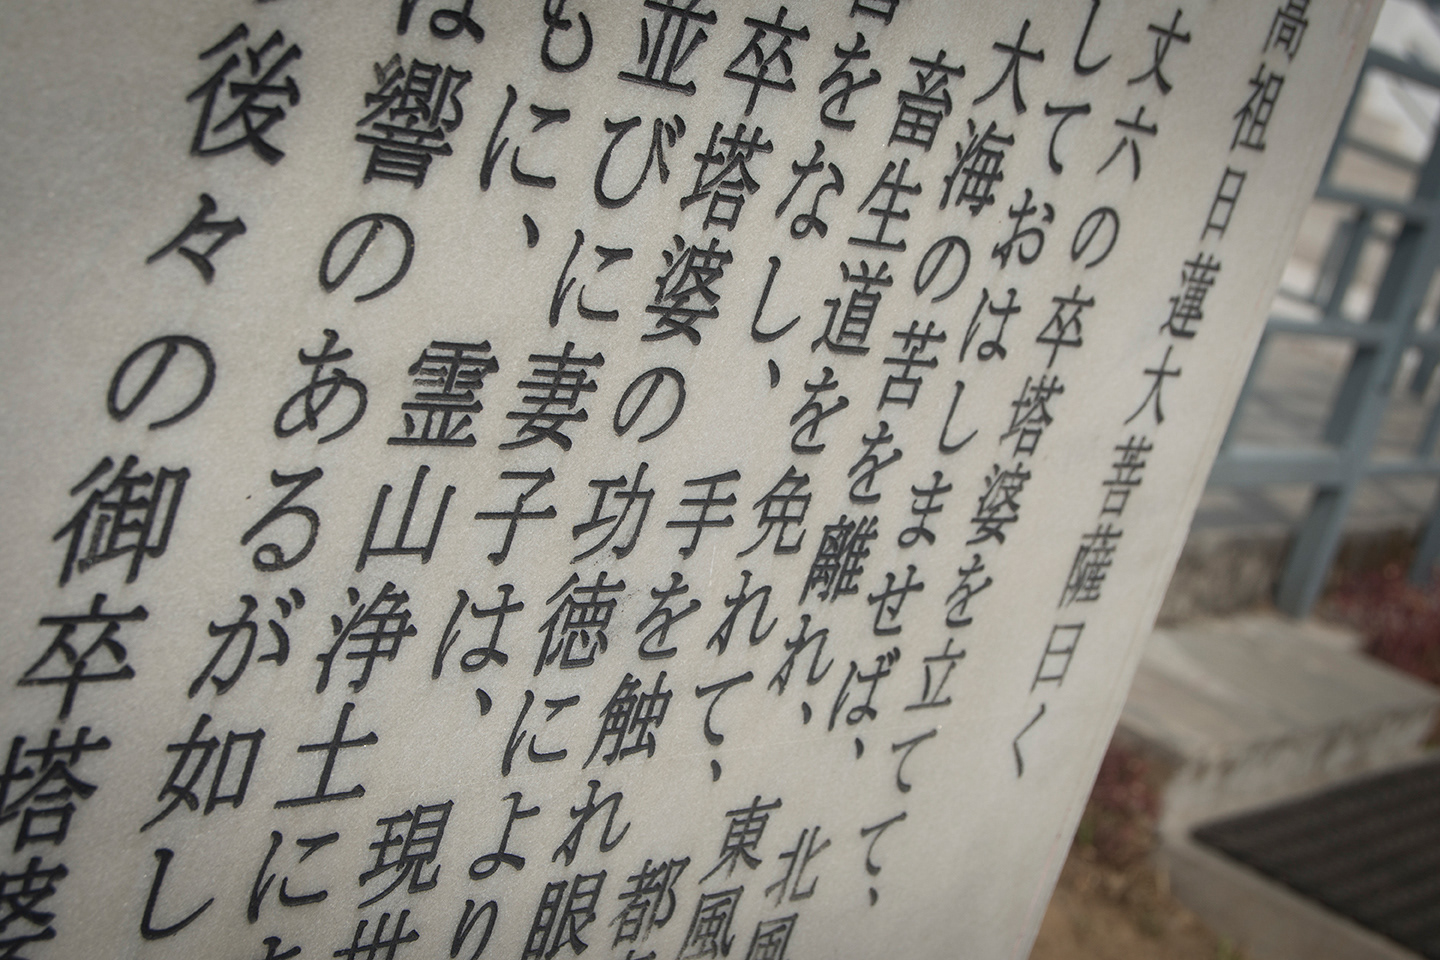 高祖日蓮大菩薩曰く
丈六の卒塔婆を立てて、
しておはしませば、北風
大海の苦を離れ、東風
畜生道を免れて、都
をなし、手を触れ眼
卒塔婆の功徳により
並びに妻子は、現世
もに、霊山浄土に
は響のあるが如し
後々の御卒塔婆